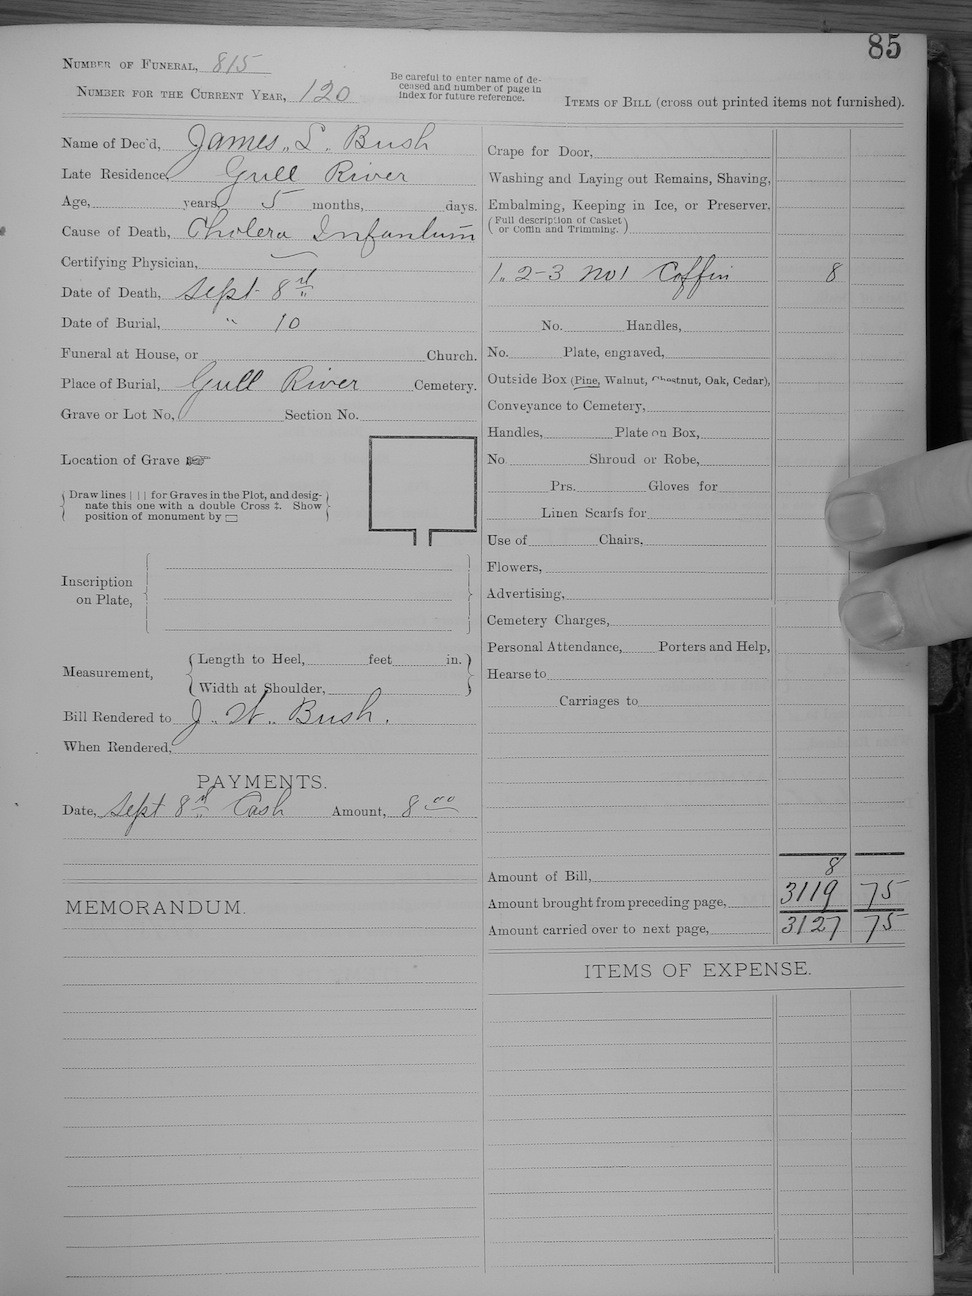 85
Number of Funeral, 815
Number for the Current Year, 120
Be careful to enter name of de-
ceased and number of page in
index for future reference.
Items of Bill (cross out printed items not furnished).
Name of Dec'd, James. S. Bush
Late Residence, Gull River
Age, years, 5 months, days.
Cause of Death, Cholera Infantum
Certifying Physician,
Date of Death, Sept 8
Date of Burial, " 10
Funeral at House, or Church.
Place of Burial, Gull River Cemetery.
Grave or Lot No, Section No.
Location of Grave ☞
Draw lines | | | for Graves in the Plot, and desig-
nate this one with a double Cross ‡. Show
position of monument by ▭
Inscription
on Plate,
Measurement,
Length to Heel, feet in.
Width at Shoulder,
Bill Rendered to J. W. Bush.
When Rendered,
PAYMENTS.
Date, Sept 8 Cash Amount, 8 00
MEMORANDUM.
Crape for Door,
Washing and Laying out Remains, Shaving,
Embalming, Keeping in Ice, or Preserver.
(Full description of Casket
or Coffin and Trimming.)
1. 2-3 No 1 Coffin 8
No. Handles,
No. Plate, engraved,
Outside Box (Pine, Walnut, Chestnut, Oak, Cedar),
Conveyance to Cemetery,
Handles, Plate on Box,
No Shroud or Robe,
Prs. Gloves for
Linen Scarfs for
Use of Chairs,
Flowers,
Advertising,
Cemetery Charges,
Personal Attendance, Porters and Help,
Hearse to
Carriages to
Amount of Bill, 8
Amount brought from preceding page, 3119 75
Amount carried over to next page, 3127 75
ITEMS OF EXPENSE.